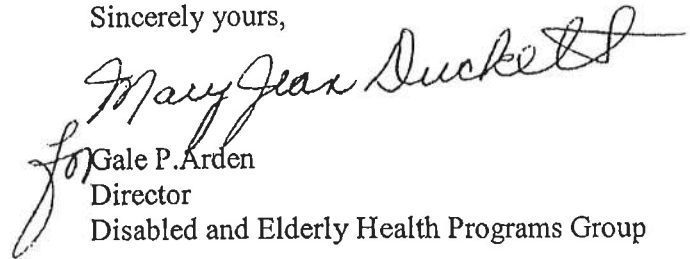 Sincerely yours,
Mary Jean Duckett
for Gale P. Arden
Director
Disabled and Elderly Health Programs Group